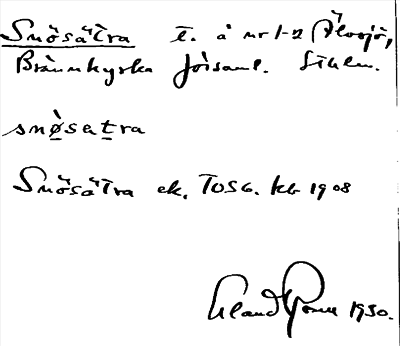 Snösätra t. å nr 1-2 Älvsjö,
Brännkyrka förs:aml. Sthlm.
snø̀satra
Snösätra ek. TOSG. kb 1908
Erland Rosell 1930.